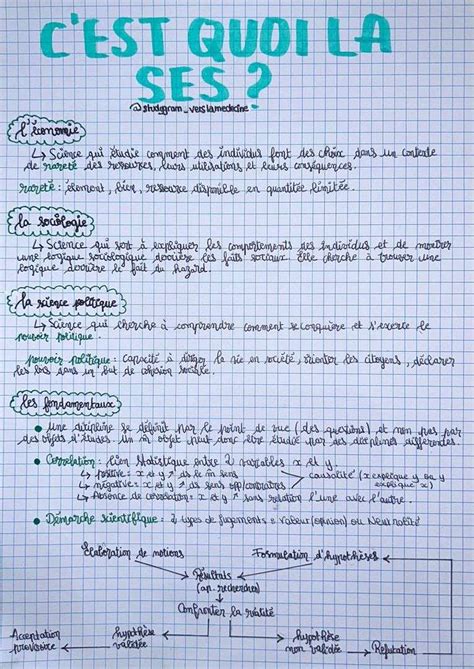 C'EST QUOI LA
SES ?
@studygram_verslamedecine
l'économie
↳ Science qui étudie comment des individus font des choix dans un contexte
de rareté des ressources, leurs utilisations et leurs conséquences.
rareté : élément, bien, ressource disponible en quantité limitée.
la sociologie
↳ Science qui sert à expliquer les comportements des individus et de montrer
une logique sociologique derrière les faits sociaux. Elle cherche à trouver une
logique derrière le fait du hasard.
la science politique
↳ Science qui cherche à comprendre comment se conquière et s'exerce le
pouvoir politique.
pouvoir politique : capacité à diriger la vie en société, orienter les citoyens, déclarer
les lois dans un but de cohésion sociale.
les fondamentaux
• Une discipline se définit par le point de vue (des questions) et non pas par
des objets d'études. Un m̂ objet peut donc être étudié par des disciplines différentes.
• Corrélation : lien statistique entre 2 variables x et y.
↳ positive = x et y ↗ ds le m̂ sens
↳ négative = x et y ↗ ds sens opp/contraires
causalité (x explique y ou y
explique x)
↳ Absence de corrélation = x et y ↗ sans relation l'une avec l'autre.
• Démarche scientifique = 2 types de jugements = Valeur (opinion) ou Neutralité
Élaboration de notions
Formulation d'hypothèses
Résultats
(ap. recherches)
Confronter la réalité
Acceptation
provisoire
hypothèse
validée
hypothèse
non validée
Réfutation